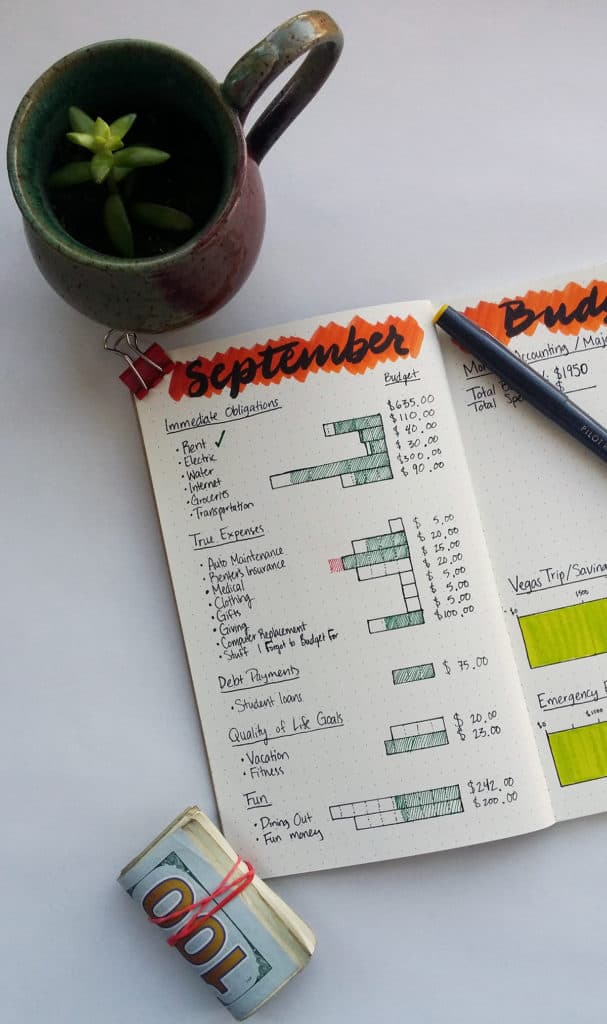 September
Budget
Immediate Obligations
• Rent ✓ $635.00
• Electric $110.00
• Water $ 40.00
• Internet $ 30.00
• Groceries $300.00
• Transportation $ 90.00
True Expenses
• Auto Maintenance $ 5.00
• Renter's Insurance $ 20.00
• Medical $ 25.00
• Clothing $ 20.00
• Gifts $ 5.00
• Giving $ 5.00
• Computer Replacement $ 5.00
• Stuff I Forgot to Budget For $100.00
Debt Payments
• Student loans $ 75.00
Quality of Life Goals
• Vacation $ 20.00
• Fitness $ 23.00
Fun
• Dining Out $242.00
• Fun money $200.00
Accounting / Maj
$1950
Total
Total $
PILOT
Vegas Trip/Savin
$0
Emergency
$0
100